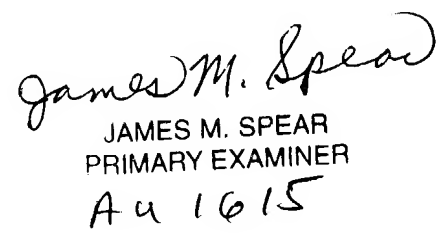 James M. Spear
JAMES M. SPEAR
PRIMARY EXAMINER
AU 1615